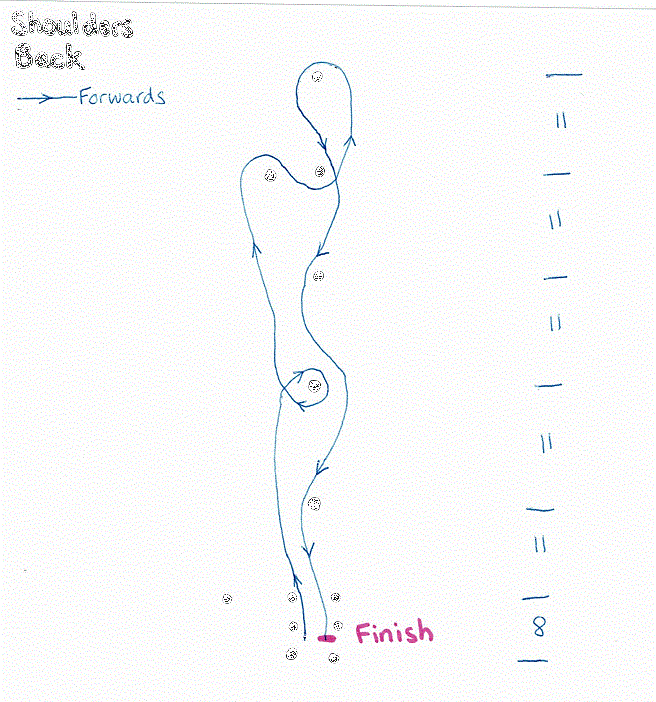 Shoulders
Back
Forwards
11
11
11
11
11
8
Finish